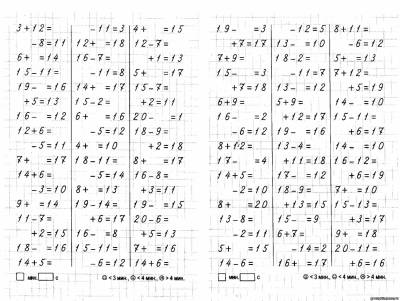 3+12= -11=3 4+ =15
-8=11 12+ =18 12-7=
6+ =14 16-7= +1=13
15-11= -11=8 5+ =17
19- =16 14+ =17 15-13=
+5=13 15-2= +2=11
16- =12 6+ =16 20- =1
12+6= -5=12 18-9=
-5=11 4+ =10 +2=18
7+ =17 18-11= 8+ =17
14+5= -5=14 15-6=
-3=10 8+ =16 +3=11
9+ =14 19-14= 19- =15
11-7= +6=17 20-6=
+2=15 13-8= +3=13
18- =16 15-11= 7+ =16
14+5= -6=12 14+6=
мин. с <3 мин., <4 мин., >4 мин.
19- =3 -12=5 8+11=
+7=17 13- =10 -6=12
7+9= 18-2= 5+ =13
15- =3 -11=7 7+12=
19- =17 13-12= +5=19
6+9= 5+9= 14- =10
16- =2 +12=17 15-11=
-6=12 19- =16 +6=17
8+12= 13-4= 14- =10
17- =4 +11=18 16-12=
14+6= 17- =16 +6=19
-2=10 18-9= 7+ =10
8+ =20 +10=13 15-13=
13-8= 15- =9 +3=17
-2=11 6+7= 9+ =18
5+ =15 -14=2 20-11=
14-6= 16+ =17 +6=16
мин. с <3 мин., <4 мин., >4 мин.